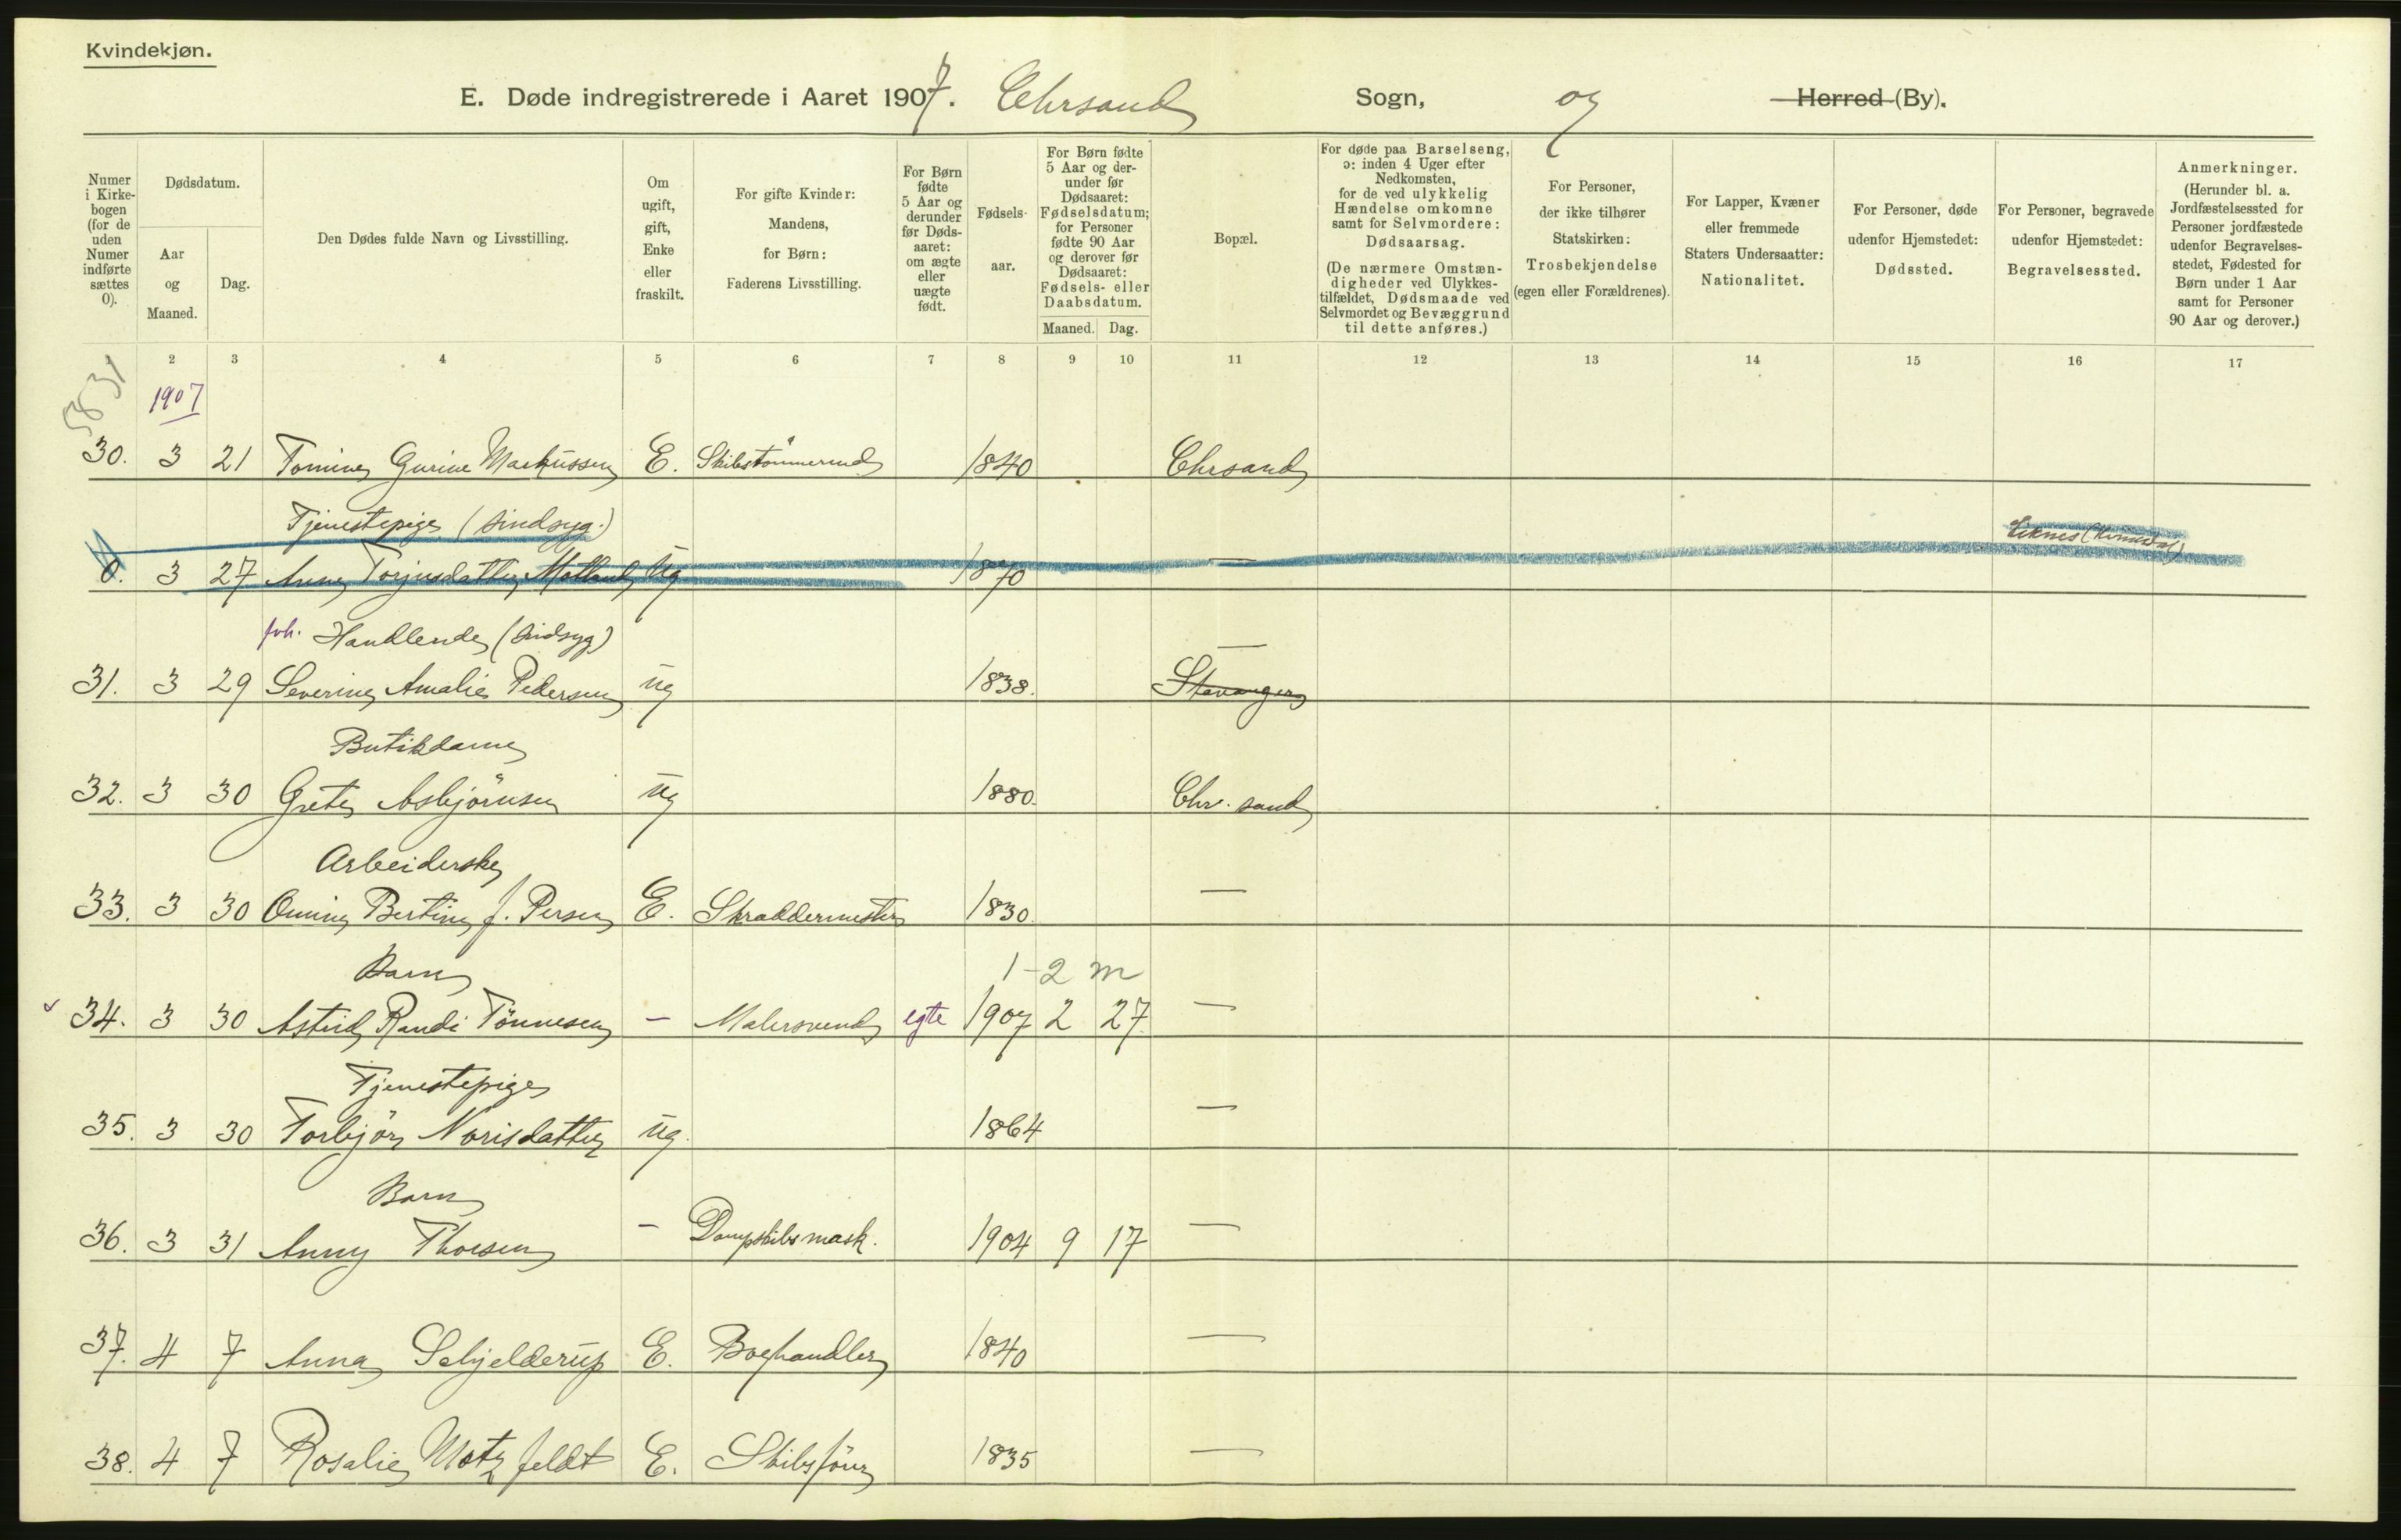 Kvindekjøn.
E. Døde indregistrerede i Aaret 1907. Chrsand Sogn, og Herred (By).
Numer i Kirke-bogen (for de uden Numer indførte sættes 0).
Dødsdatum.
Aar og Maaned.
Dag.
Den Dødes fulde Navn og Livsstilling.
Om ugift, gift, Enke eller fraskilt.
For gifte Kvinder: Mandens, for Børn: Faderens Livsstilling.
For Børn fødte 5 Aar og derunder før Døds-aaret: om ægte eller uægte født.
Fødsels-aar.
For Børn fødte 5 Aar og der-under før Dødsaaret: Fødselsdatum; for Personer fødte 90 Aar og derover før Dødsaaret: Fødsels- eller Daabsdatum.
Maaned. Dag.
Bopæl.
For døde paa Barselseng, ɔ: inden 4 Uger efter Nedkomsten, for de ved ulykkelig Hændelse omkomne samt for Selvmordere: Dødsaarsag.
(De nærmere Omstæn-digheder ved Ulykkes-tilfældet, Dødsmaade ved Selvmordet og Bevæggrund til dette anføres.)
For Personer, der ikke tilhører Statskirken: Trosbekjendelse (egen eller Forældrenes).
For Lapper, Kvæner eller fremmede Staters Undersaatter: Nationalitet.
For Personer, døde udenfor Hjemstedet: Dødssted.
For Personer, begravede udenfor Hjemstedet: Begravelsessted.
Anmerkninger.
(Herunder bl. a. Jordfæstelsessted for Personer jordfæstede udenfor Begravelses-stedet, Fødested for Børn under 1 Aar samt for Personer 90 Aar og derover.)
1 2 3 4 5 6 7 8 9 10 11 12 13 14 15 16 17
1907
30. 3 21 Tomine Gurine Markussen E. Skibstömmermd 1840 Chrsand
Tjenestepige (sindsyg.)
0. 3 27 Anne Torjusdatter ug 1870 —
fvh. Handlende (sindsyg)
31. 3 29 Severine Amalie Pedersen ug 1838. — Stavanger
Butikdame
32. 3 30 Grete Asbjörnsen ug 1880. Chr.sand
Arbeiderske
33. 3 30 Omine Bertine f. Persen E. Skræddermester 1830. —
Barn 1-2 m
34. 3 30 Astrid Randi Tönnesen — Malersvend egte 1907 2 27. —
Tjenestepige
35. 3 30 Torbjör Norisdatter ug. 1864 —
Barn
36. 3 31 Anny Thorsen — Dampskibsmask. 1904 9 17 —
37. 4 7 Anna Schjelderup E. Boghandler 1840 —
38. 4 7 Rosalie Motzfeldt E. Skibsförer 1835 —